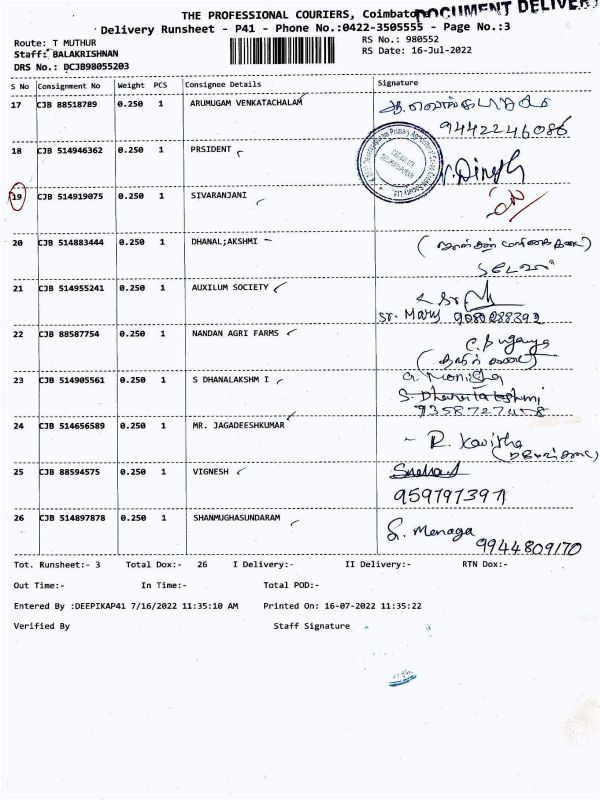 THE PROFESSIONAL COURIERS, Coimbatore
DOCUMENT DELIVERY
Delivery Runsheet - P41 - Phone No.:0422-3505555 - Page No.:3
Route: T MUTHUR RS No.: 980552
Staff: BALAKRISHNAN RS Date: 16-Jul-2022
DRS No.: DCJB98055203
S No Consignment No Weight PCS Consignee Details Signature
17 CJB 88518789 0.250 1 ARUMUGAM VENKATACHALAM
9442246086
18 CJB 514946362 0.250 1 PRSIDENT
V. Dinesh
19 CJB 514919075 0.250 1 SIVARANJANI
20 CJB 514883444 0.250 1 DHANAL;AKSHMI
21 CJB 514955241 0.250 1 AUXILUM SOCIETY
Sr. Mary 9080288392
22 CJB 88587754 0.250 1 NANDAN AGRI FARMS
23 CJB 514905561 0.250 1 S DHANALAKSHM I
G. Monisha
S. Dhanalakshmi
9358727458
24 CJB 514656589 0.250 1 MR. JAGADEESHKUMAR
- R. Kavitha
25 CJB 88594575 0.250 1 VIGNESH
9597973971
26 CJB 514897878 0.250 1 SHANMUGHASUNDARAM
S. Menaga
9944809170
Tot. Runsheet:- 3 Total Dox:- 26 I Delivery:- II Delivery:- RTN Dox:-
Out Time:- In Time:- Total POD:-
Entered By :DEEPIKAP41 7/16/2022 11:35:10 AM Printed On: 16-07-2022 11:35:22
Verified By Staff Signature